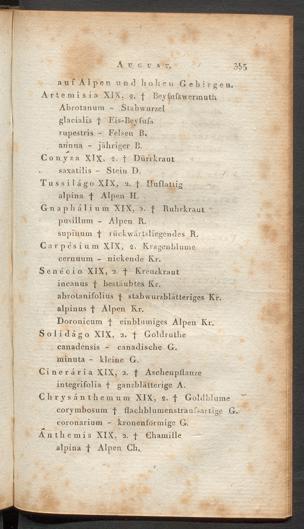 August. 355
auf Alpen und hohen Gebirgen.
Artemisia XIX, 2. † Beyfußwermuth
Abrotanum - Stabwurzel
glacialis † Eis-Beyfuß
rupestris - Felsen B.
annua - jähriger B.
Conyza XIX. 2. † Dürrkraut
saxatilis - Stein D.
Tussilágo XIX, 2. † Huflattig
alpina † Alpen H.
Gnaphálium XIX, 2. † Ruhrkraut
pusillum - Alpen R.
supinum † rückwärtsliegendes R.
Carpésium XIX, 2. Kragenblume
cernuum - nickende Kr.
Senécio XIX, 2. † Kreuzkraut
incanus † bestäubtes Kr.
abrotanifolius † stabwurzblätteriges Kr.
alpinus † Alpen Kr.
Doronicum † einblumiges Alpen Kr.
Solidágo XIX, 2. † Goldruthe
canadensis - canadische G.
minuta - kleine G.
Cinerária XIX, 2. † Aschenpflanze
integrifolia † ganzblätterige A.
Chrysánthemum XIX, 2. † Goldblume
corymbosum † flachblumenstraußartige G.
coronarium - kronenförmige G.
Ánthemis XIX, 2. † Chamille
alpina † Alpen Ch.